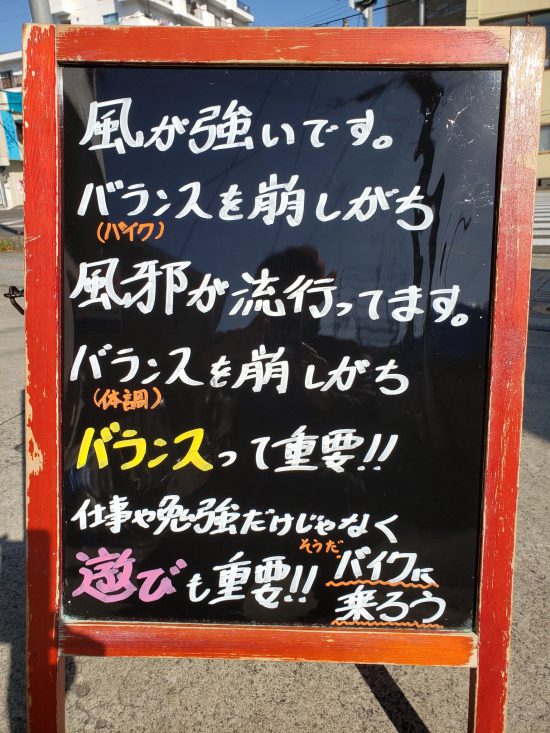 風が強いです。
バランスを崩しがち
(バイク)
風邪が流行ってます。
バランスを崩しがち
(体調)
バランスって重要!!
仕事や勉強だけじゃなく
遊びも重要!!
そうだ
バイクに
乗ろう